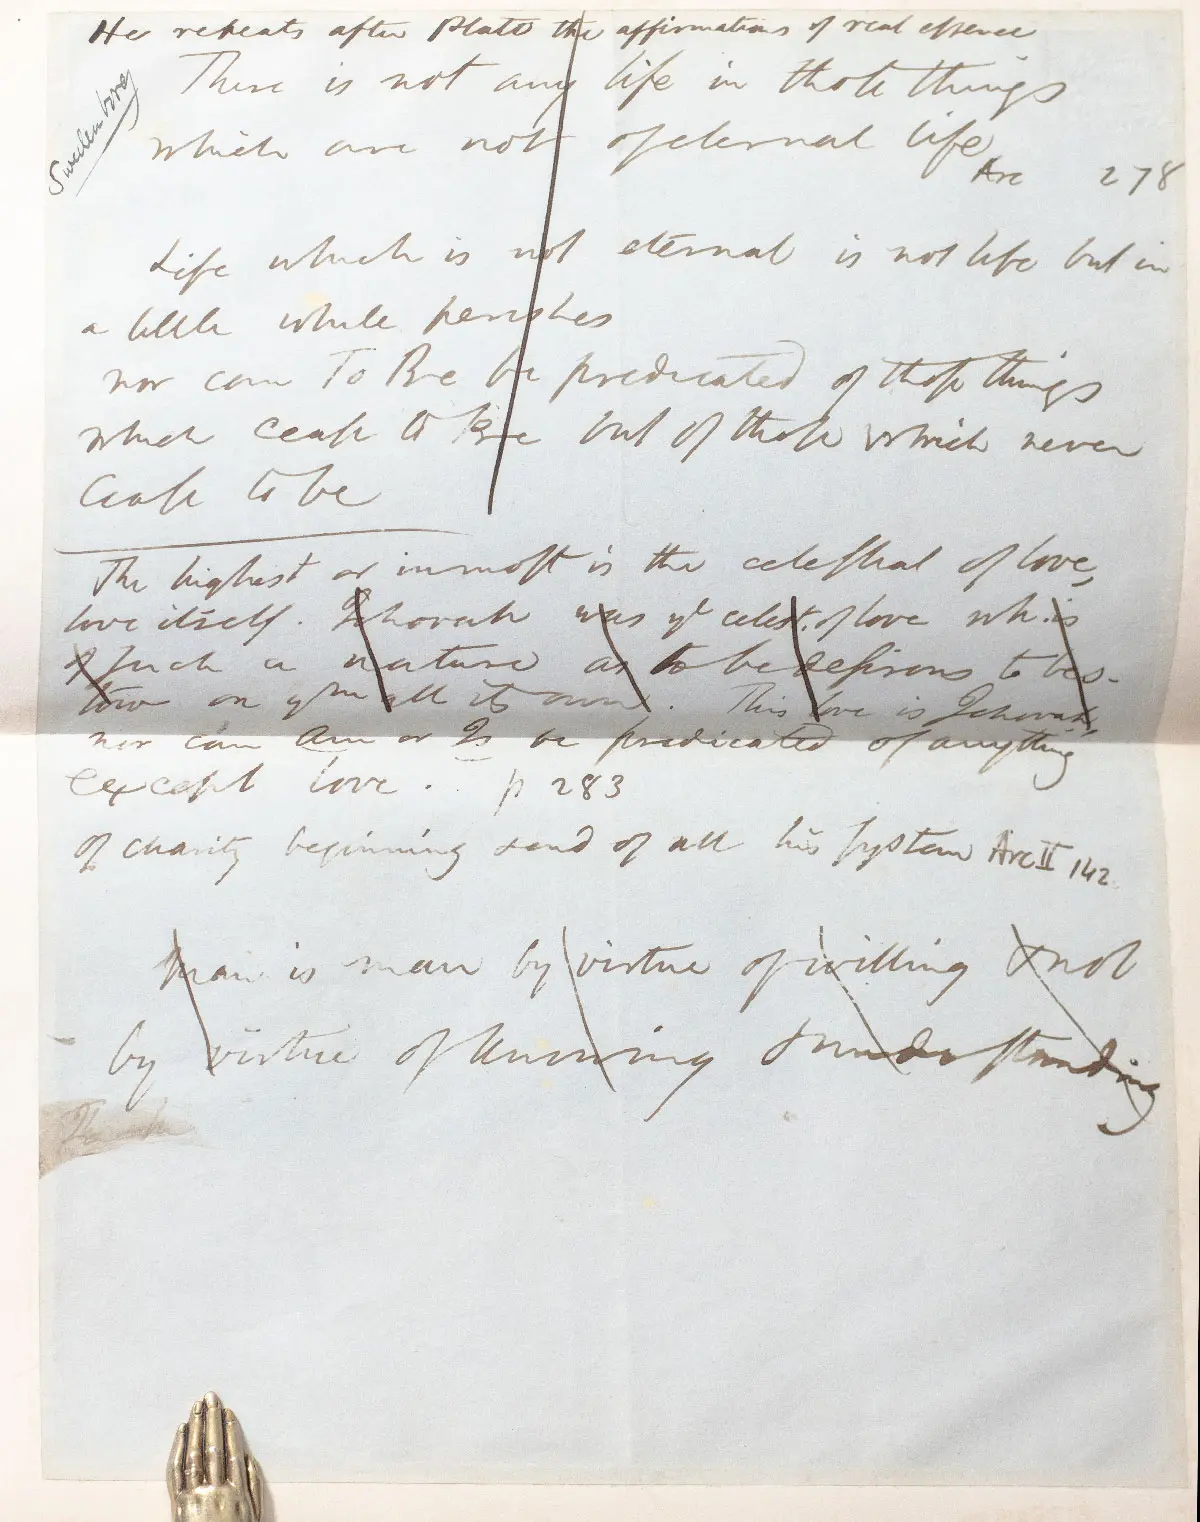 He repeats after Plato the affirmations of real essence
Swedenborg
There is not any life in those things
which are not of eternal life
Arc 278
Life which is not eternal is not life but in
a little while perishes
nor can To Be be predicated of those things
which cease to Be but of those which never
Cease to be
The highest or inmost is the celestial of love,
love itself. Jehovah was ye celest. of love wh. is
of such a nature as to be desirous to bes-
tow on ym all its own. This love is Jehovah,
nor can Am or Is be predicated of anything
except love. p 283
Of charity beginning & end of all his system Arc II 142
Man is man by virtue of willing & not
by virtue of knowing & understanding